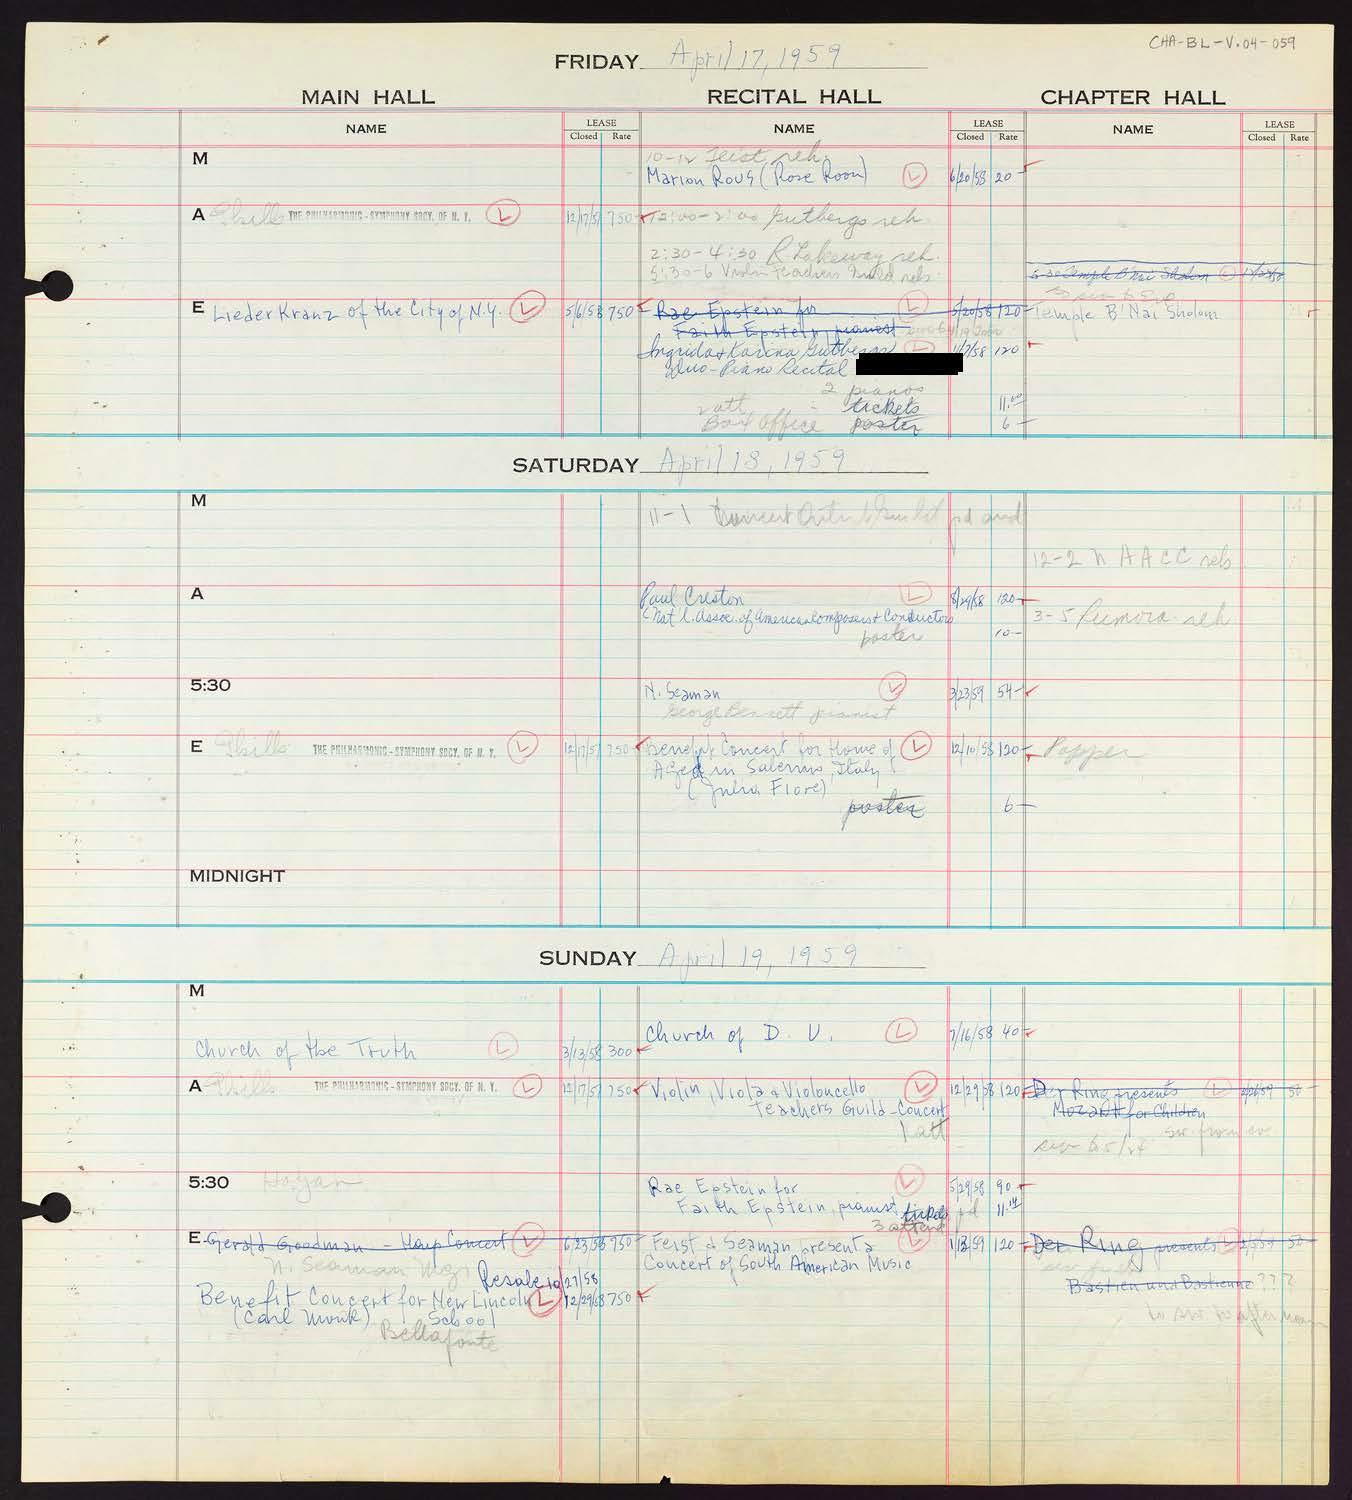 CHA-BL-V.04-059
FRIDAY April 17, 1959
MAIN HALL RECITAL HALL CHAPTER HALL
NAME LEASE NAME LEASE NAME LEASE
Closed Rate Closed Rate Closed Rate
M 10-12 Feist reh.
Marion Rous (Rose Room) L 6/20/58 20-
A Phills THE PHILHARMONIC-SYMPHONY SOCY. OF N. Y. L 12/17/57 750- 12:00-2:00 Gutbergs reh.
2:30-4:30 R. Lakeway reh.
5:30-6 Violin Teachers Guild reh.
5:30 Temple B'nai Sholom L
E LiederKranz of the City of N.Y. L 5/6/58 750 Rae Epstein for L 5/20/58 120- Temple B'Nai Sholom
Faith Epstein, pianist
Ingrida & Karina Gutbergs L 11/7/58 120
Duo-Piano Recital
2 pianos
2 att tickets 11.00
Box Office poster 6-
SATURDAY April 18, 1959
M
11-1 Concert Artists Guild pd aud
12-2 NAACC reh
A Paul Creston L 8/29/58 120-
(Nat'l. Assoc. of American Composers & Conductors 3-5 Rumora reh
poster 10-
5:30 N. Seaman L 3/23/59 54-
George Bennett pianist
E Phills THE PHILHARMONIC-SYMPHONY SOCY. OF N. Y. L 12/17/57 750- Benefit Concert for Home of L 12/10/58 120- Popper
Aged in Salerno, Italy
(Julia Fiore)
poster 6-
MIDNIGHT
SUNDAY April 19, 1959
M
Church of D. U. L 7/16/58 40-
Church of the Truth L 3/13/58 300
A Phills THE PHILHARMONIC-SYMPHONY SOCY. OF N. Y. L 12/17/57 750- Violin, Viola & Violoncello L 12/29/58 120- Der Ring presents L 2/26/59 50-
Teachers Guild-Concert Mozart for Children
1 att sw. from eve
5:30 Hayan Rae Epstein for L 5/29/58 90-
Faith Epstein, pianist tickets pd 11.14
3 attend
E Gerald Goodman - Harp Concert L 6/23/58 750- Feist & Seaman present a L 1/13/59 120- Der Ring presents L 50-
N. Seaman Mgr Concert of South American Music
Resale 10/27/58 Bastien und Bastienne ???
Benefit Concert for New Lincoln L 12/29/58 750-
(Carl Monk) School to sw. to afternoon
Bellafonte